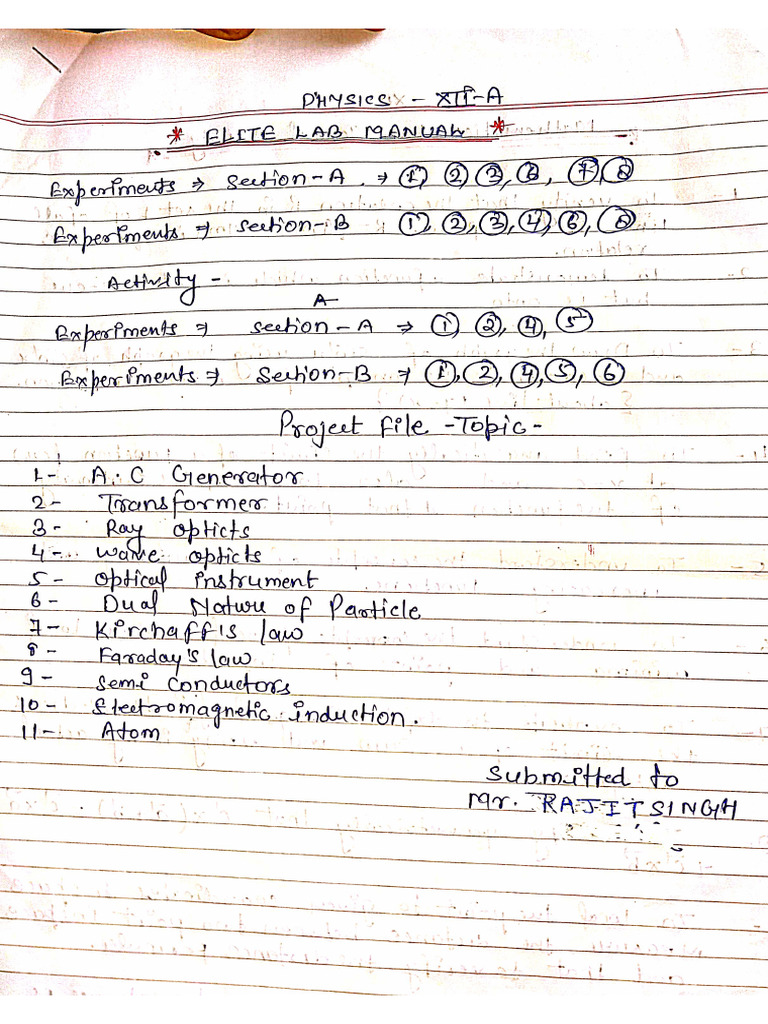 PHYSICS - XII-A
* ELITE LAB MANUAL *
Experiments ⇒ Section-A ⇒ ①, ② ③, ⑥, ⑦, ⑧
Experiments ⇒ Section-B ①, ②, ③, ④, ⑥, ⑧
Activity -
A
Experiments ⇒ Section - A ⇒ ①, ②, ④, ⑤
Experiments ⇒ Section-B ⇒ ①, ②, ④, ⑤, ⑥
Project file -Topic-
1- A.C Generator
2- Transformer
3- Ray opticts
4- wave opticts
5- optical instrument
6- Dual Nature of Particle
7- Kirchaff's law
8- Faraday's law
9- Semi conductors
10- Electromagnetic induction.
11- Atom
Submitted to
Mr. RAJIT SINGH